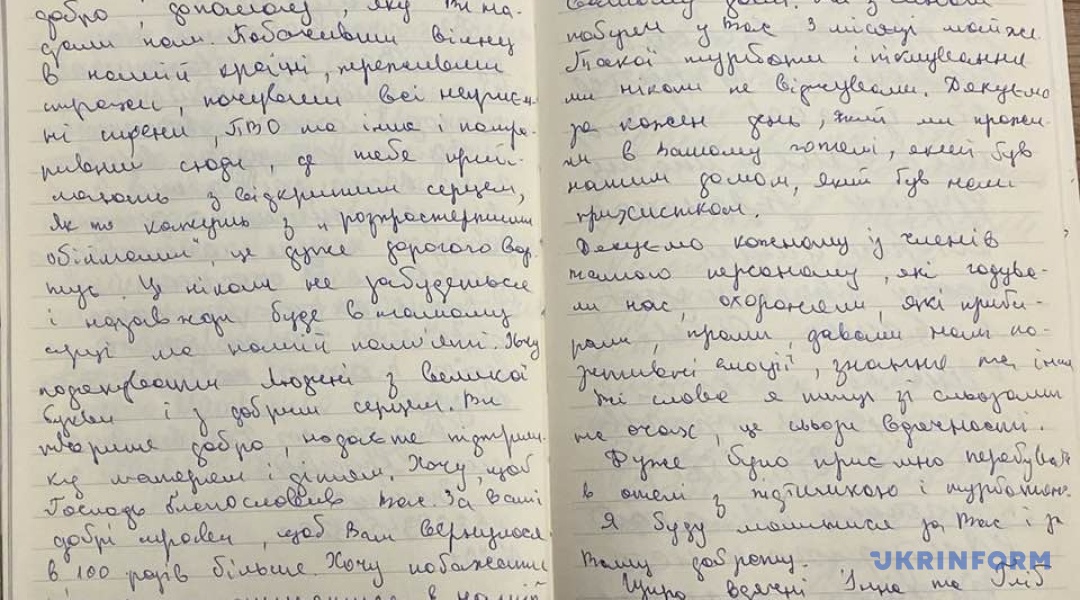 добро, допомогу, яку Ви на-
дали нам. Побачивши війну
в нашій країні, переживши
страхи, почувши всі неприєм-
ні сирени, ППО та інше і потра-
пивши сюди, де тебе прий-
мають з відкритим серцем,
як то кажуть з „розпростертими
обіймами", це дуже дорогого вар-
тує. Це ніколи не забудеться
і назавжди буде в нашому
серці та нашій пам'яті. Хочу
подякувати Людині з великої
букви і з добрим серцем. Ви
творите добро, надаєте підтрим-
ку матерям і дітям. Хочу, щоб
Господь благословив Вас. За Ваші
добрі справи, щоб Вам вернулося
в 100 разів більше. Хочу побажати
в нашій
побули у Вас 3 місяці майже.
Такої турботи і піклування
ми ніколи не відчували. Дякуємо
за кожен день, який ми прожи-
ли в Вашому готелі, який був
нашим домом, який був нам
прихистком.
Дякуємо кожному із членів
Вашого персоналу, які годува-
ли нас, охороняли, які приби-
рали, прали, давали нам по-
зитивні емоції, знання та інше
Ці слова я пишу зі сльозами
на очах, це сльози вдячності.
Дуже було приємно перебувать
в отелі з підтримкою і турботою.
Я буду молитися за Вас і за
Вашу доброту.
Щиро вдячні Інна та Гліб
UKRINFORM